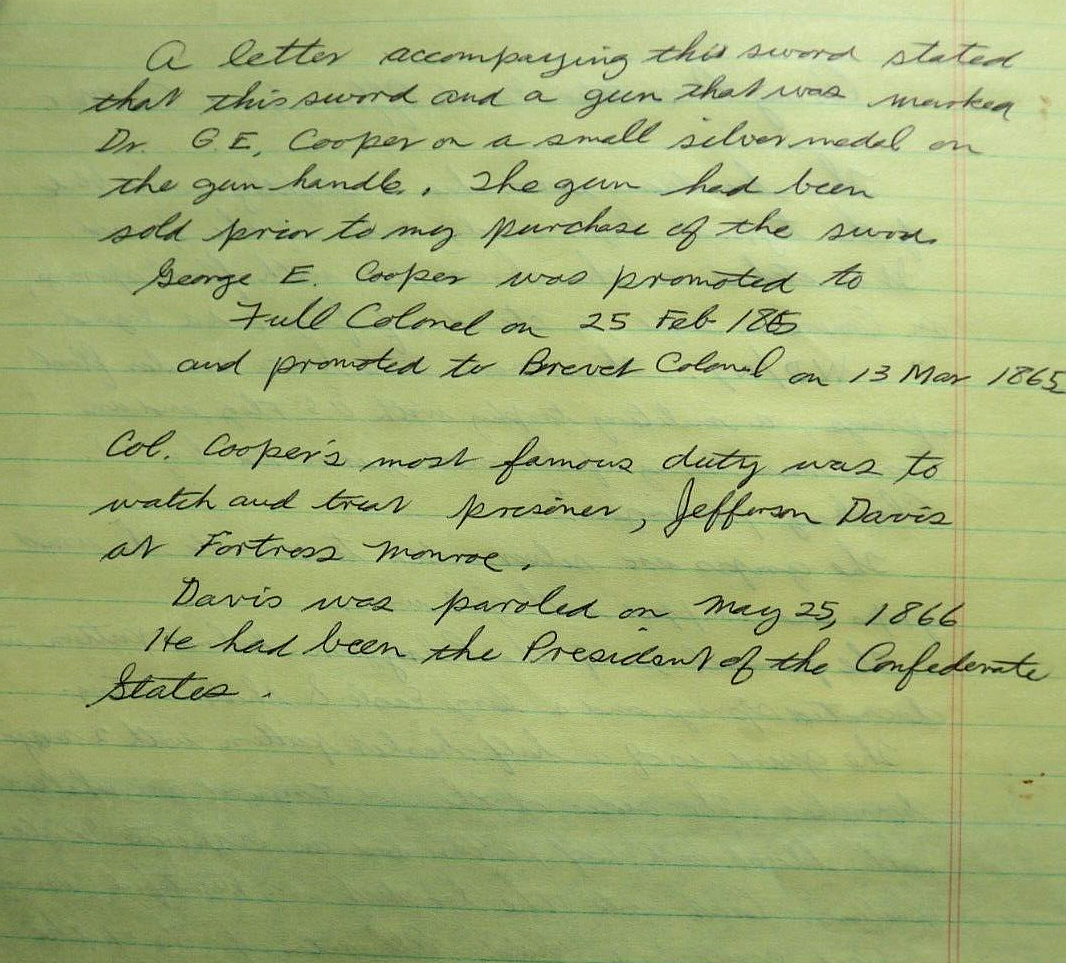 A letter accompaying this sword stated
that this sword and a gun that was marked
Dr. G.E, Cooper on a small silver medal on
the gun handle. The gun had been
sold prior to my purchase of the sword.
George E. Cooper was promoted to
Full Colonel on 25 Feb 1865
and promoted to Brevet Colonel on 13 Mar 1865
Col. Cooper's most famous duty was to
watch and treat prisoner, Jefferson Davis
at Fortress Monroe.
Davis was paroled on May 25, 1866
He had been the President of the Confederate
States.